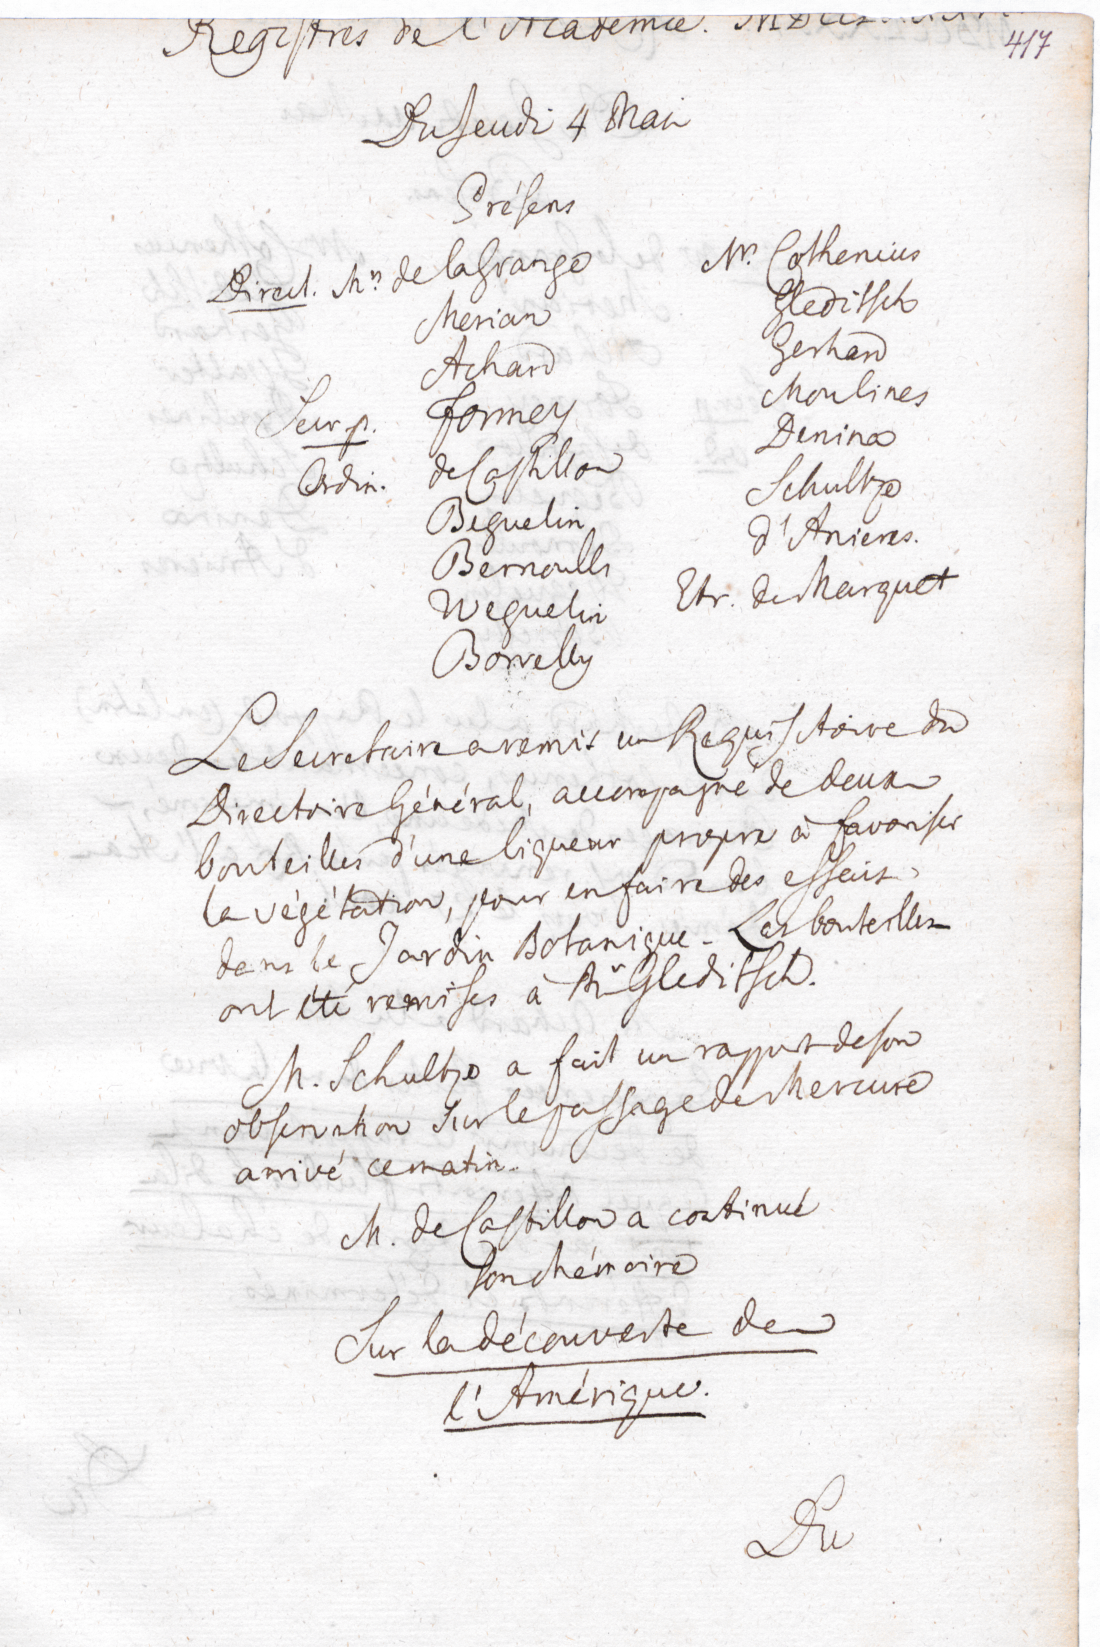 Registres de l'Academie.
417
Du Jeudi 4 Mai
Présens
Direct. Mrs de la Grange
Merian
Achard
Secr. p. Formey
Ordin. de Castillon
Beguelin
Bernoulli
Weguelin
Borrelly
Mr. Cothenius
Gleditsch
Gerhard
Moulines
Denina
Schultze
d'Anieres.
Etr. de Marquet
Le Secretaire a remis un Requisitoire du
Directoire Général, accompagné de deux
bouteilles d'une liqueur propre à favoriser
la végétation, pour en faire des essais
dans le Jardin Botanique. Les bouteilles
ont été remises à Mr Gleditsch.
M. Schultze a fait un rapport de son
observation sur le passage de Mercure
arrivé ce matin.
M. de Castillon a continué
son Mémoire
Sur la découverte de
l'Amérique.
Du